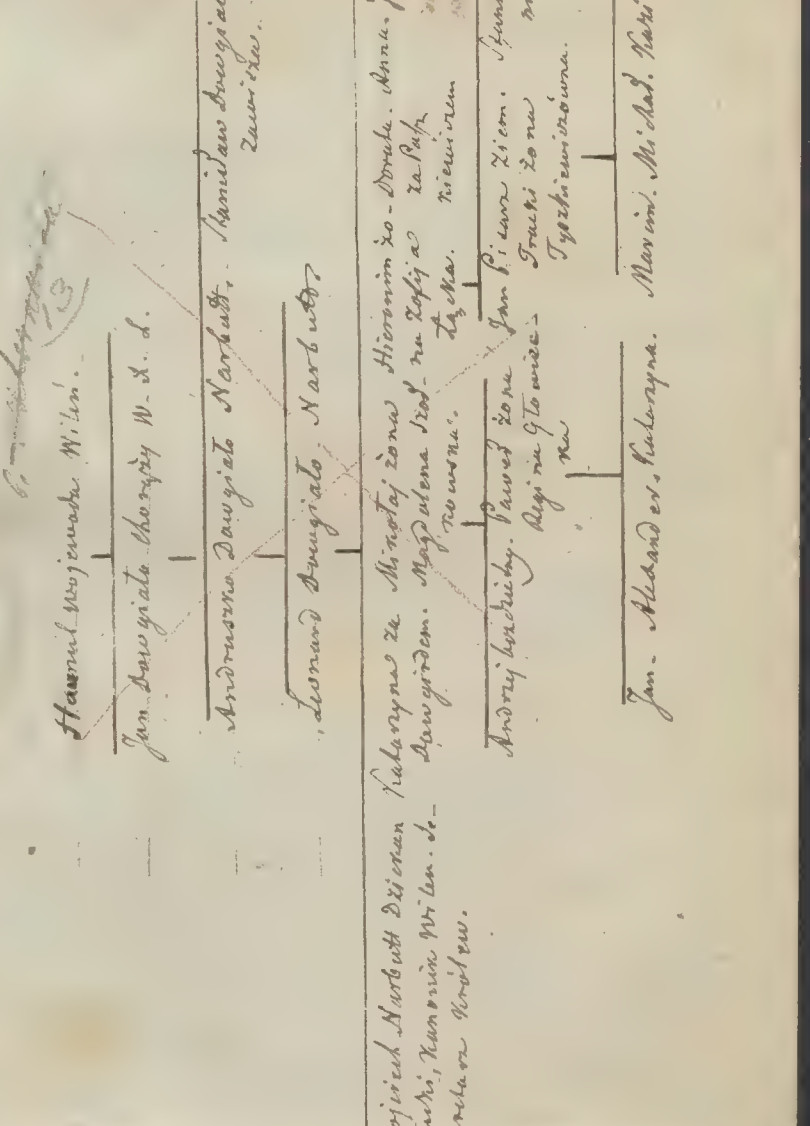 Hawnul Wojewoda Wileń.
Jan Dowgiało Chorąży W. X. L.
Andruszko Dowgiało Narbutt. Stanisław Dowgia
Zawisza.
Leonard Dowgiało Narbutt
ojciech Narbutt Dziekan
ński, Kanonik Wilen. Se-
kretarz Królew.
Katarzyna za
Dowgirdem.
Mikołaj żona
Magdalena Szod-
kowska.
Hieronim żo-
na Zofija
Łązka.
Dorota.
za Pap
kiewiczem
Anna.
Andrzej bezdzietny.
Paweł żona
Regina Głowiec-
ka
Jan Pisarz Ziem.
Trocki żona
Tyszkiewiczówna.
Jan. Alexander. Katarzyna.
Marcin. Michał. Kazi